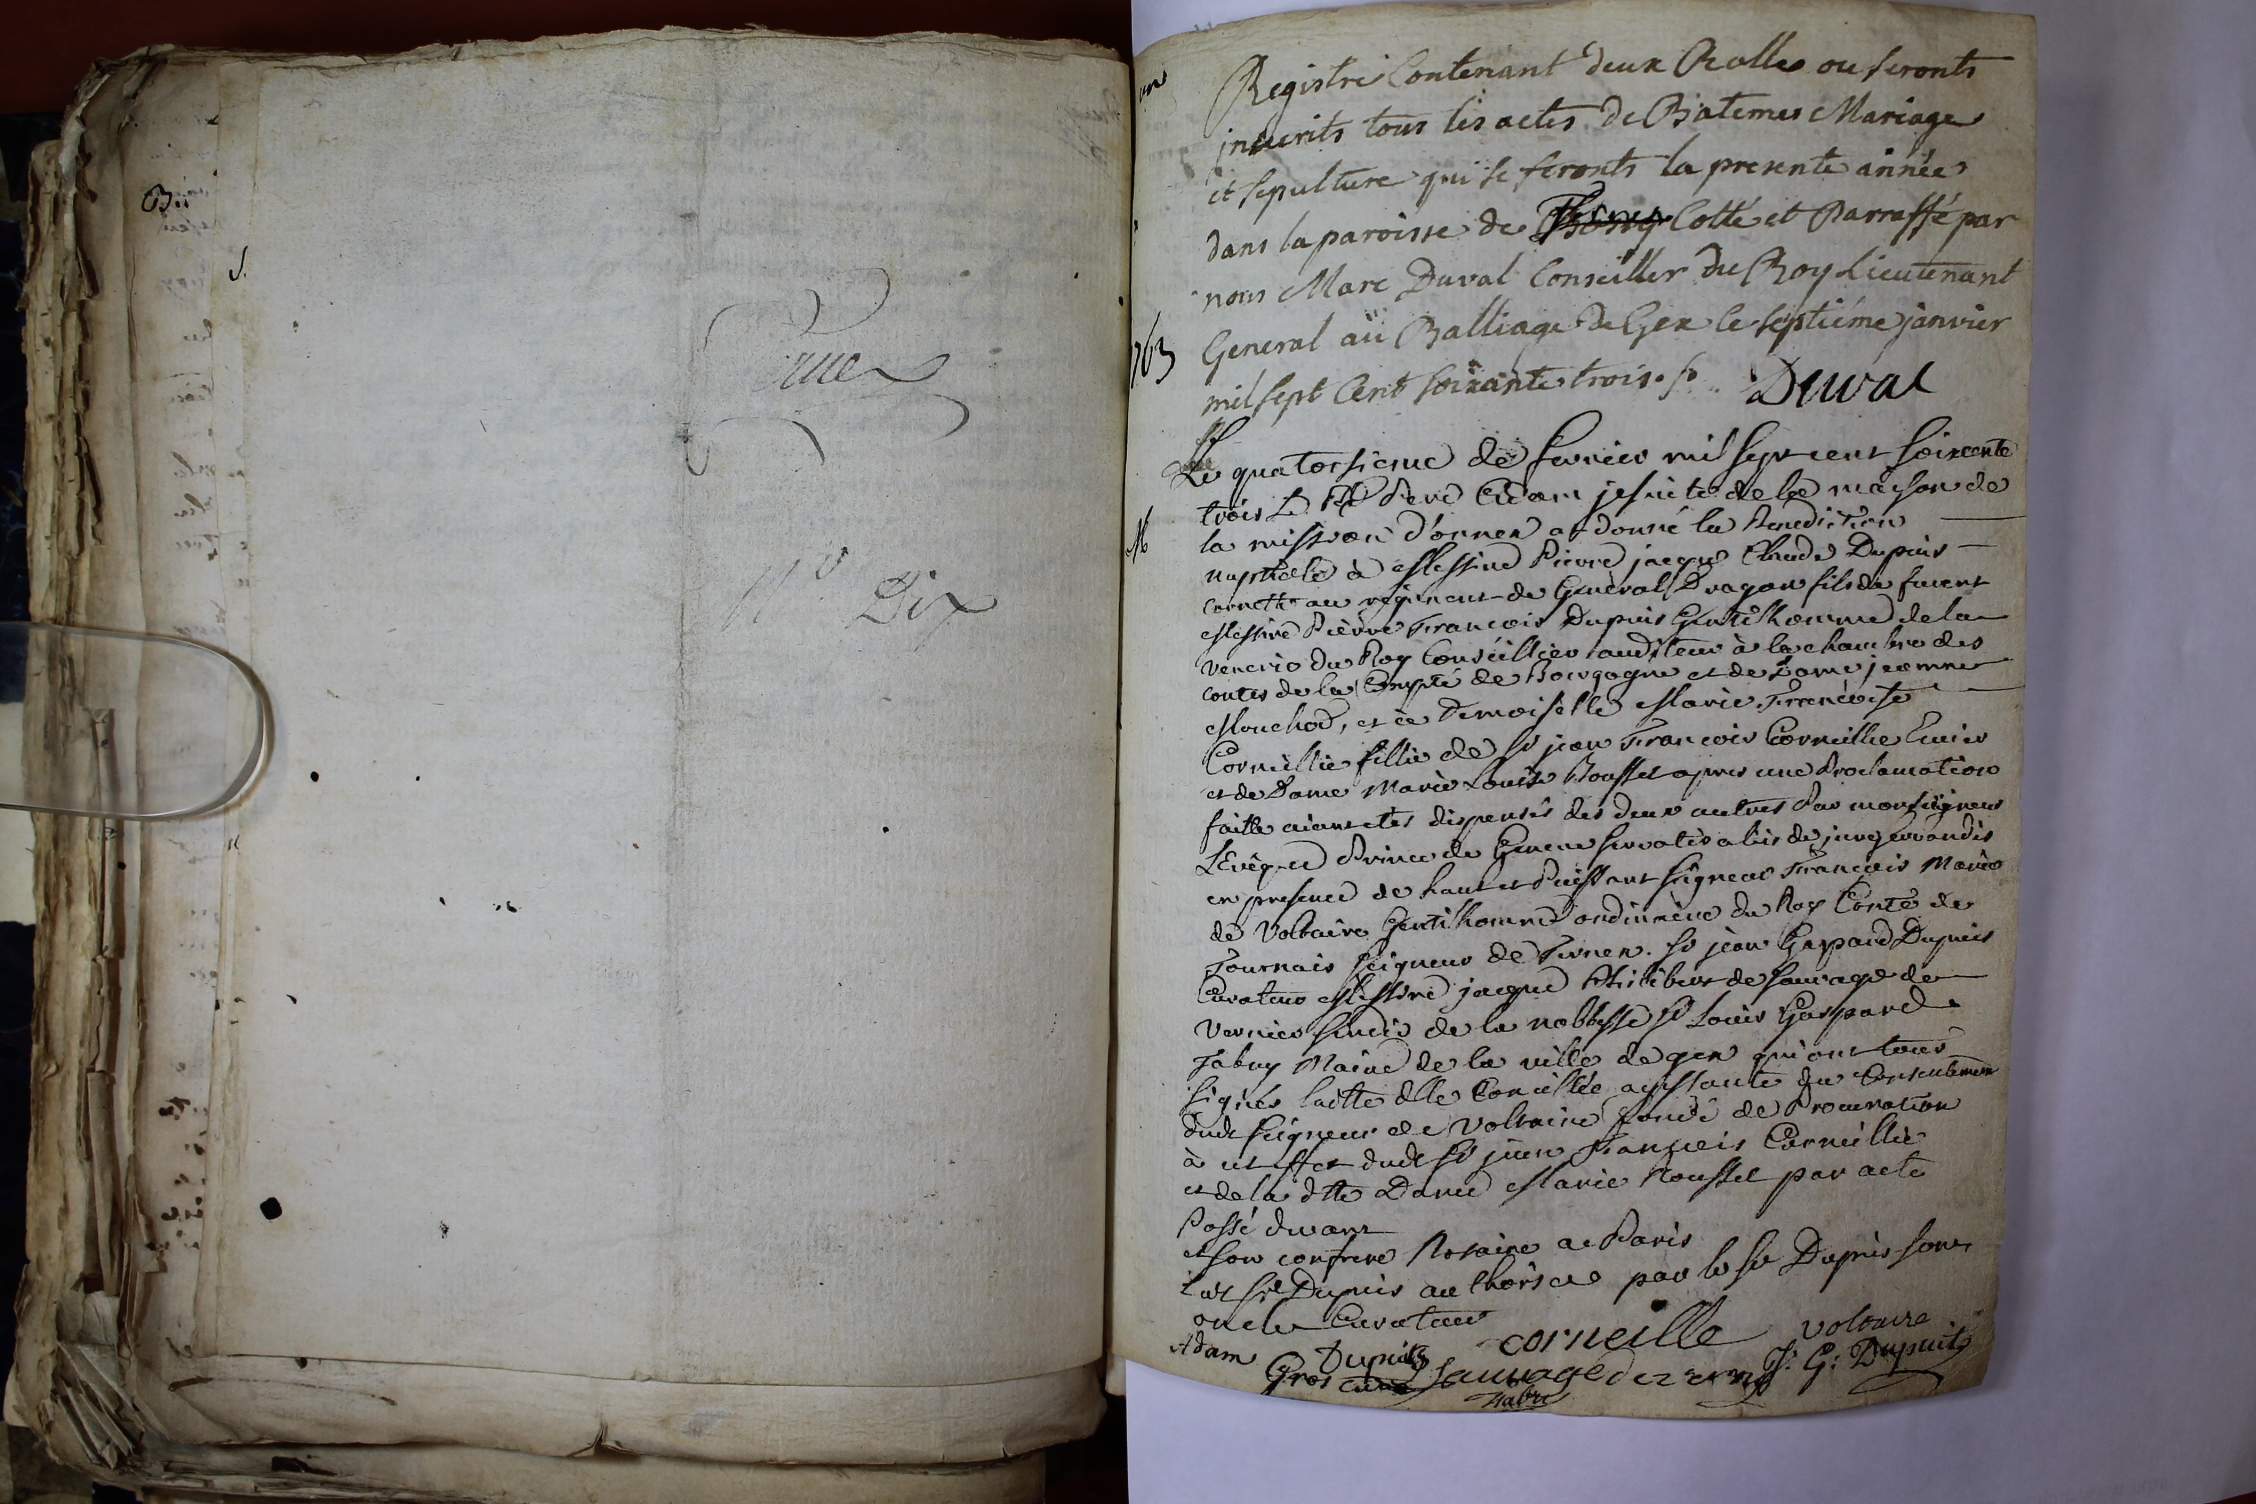 Fernex
N.o Dix
Registre Contenant deux Rolles ou seronts
inscrits tous les actes de Batemes Mariage
et sepulture qui se feronts la presente année
dans la paroisse de Cotté et Parraffé par
nous Marc Duval Conseiller du Roy Lieutenant
General au Balliage de Gex le septiéme janvier
mil sept Cent soixante trois.
Duval
1763
Le quatorsieme de fevrier mil sept cent soixante
trois Le Rd Pere Adam jesuite de la maison de
la mission d'ornex at donné la Benediction
M
nuptiale à Messire Pierre jacque Claude Dupuis
cornette au regiment de General Dragon fils de furent
Messire Pierre François Dupuis Gentilhomme de la
venerie du Roy Conseillier auditeur à la chambre des
contes de la Compté de Bourgogne et de Dame jeanne
Mouchod, et à Demoiselle Marie Françoise
Corneillie fillie de Sr jean François Corneillie
et de Dame Marie Louise Rousset apres une Proclamation
faitte aiant etes dispensés des deux autres Par monseigneur
L'Evêque Prince de Geneve servatis aliis de jure servandis
en presence de haut et Puissant seigneur François Marie
de Voltaire Gentilhomme ordinaire du Roy Conte de
Tournais seigneur de Fernex. Sr jean Gaspard Dupuis
Curateur Messire jacque Philibert de sauvage de
Vernier sindic de la noblesse Sr Louis Gaspard
Fabry Maire de la ville de gex qui ont tous
signés laditte dlle Corneillie agissante du Consentement
dudt seigneur de Voltaire fondé de Procuration
à cet effet dudt Sr jean François Corneillie
et de la dtte Dame Marie Rousset par acte
Passé devant
et son confrere Notaire a Paris
et ledt Sr Dupuis authorisé par le Sr Dupuis son
oncle Curateur
Adam Dupuits corneille voltaire
Gros curé sauvage de verny J: G: Dupuits
fabri